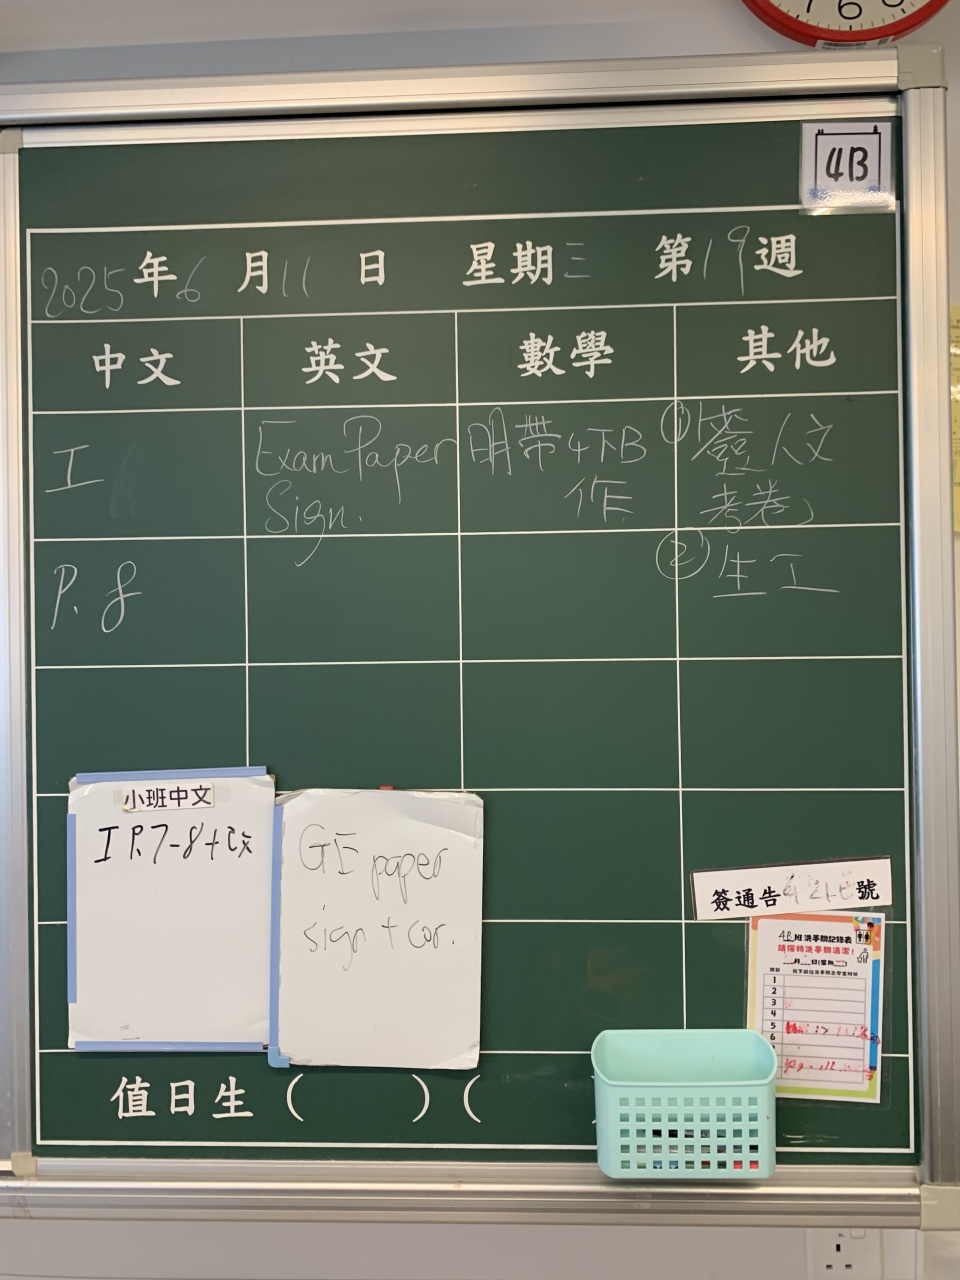 4B
2025年6月11日 星期三 第19週
中文 英文 數學 其他
I
P. 8
Exam Paper
Sign.
明帶4下B
作
① 簽人文
考卷
② 生工
小班中文
I P.7-8+改
GE paper
sign + cor.
簽通告 號
4B班洗手間記錄表
請保持洗手間清潔!
1
2
3
4
5
6
值日生 ( ) (